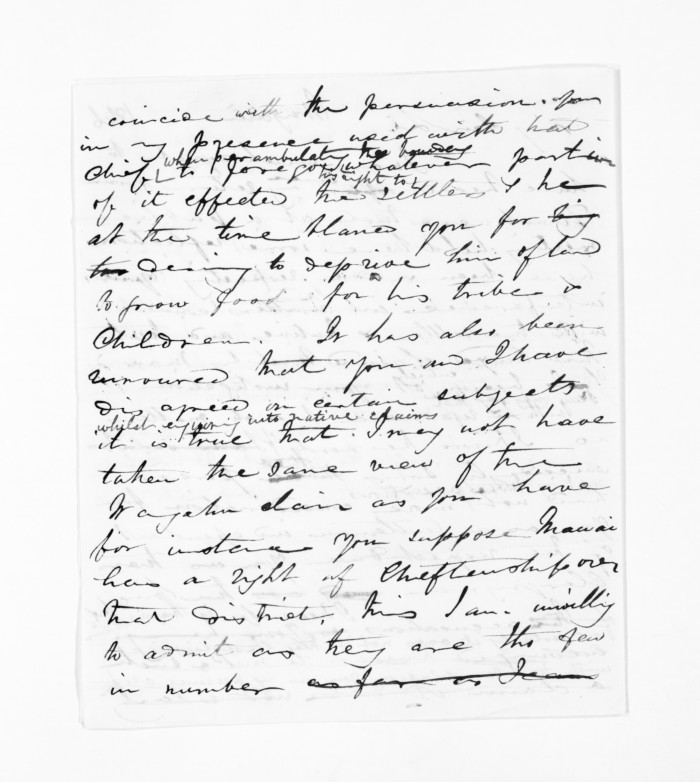 coincide with the persuasion you
in my presence used with that
when perambulating the boundary
Chief to forego whatever portion
his right to
of it effected the settlers & he
at the time blamed you for
desiring to deprive him of land
to grow food for his tribe &
Children. It has also been
rumoured that you and I have
disagreed on certain subjects
whilst enquiring into native claims
it is true that I may not have
taken the same view of the
claim as you have
for instance you suppose Mawai
has a right of Chieftenship over
that district, this I am unwilling
to admit as they are tho few
in number as far as I can